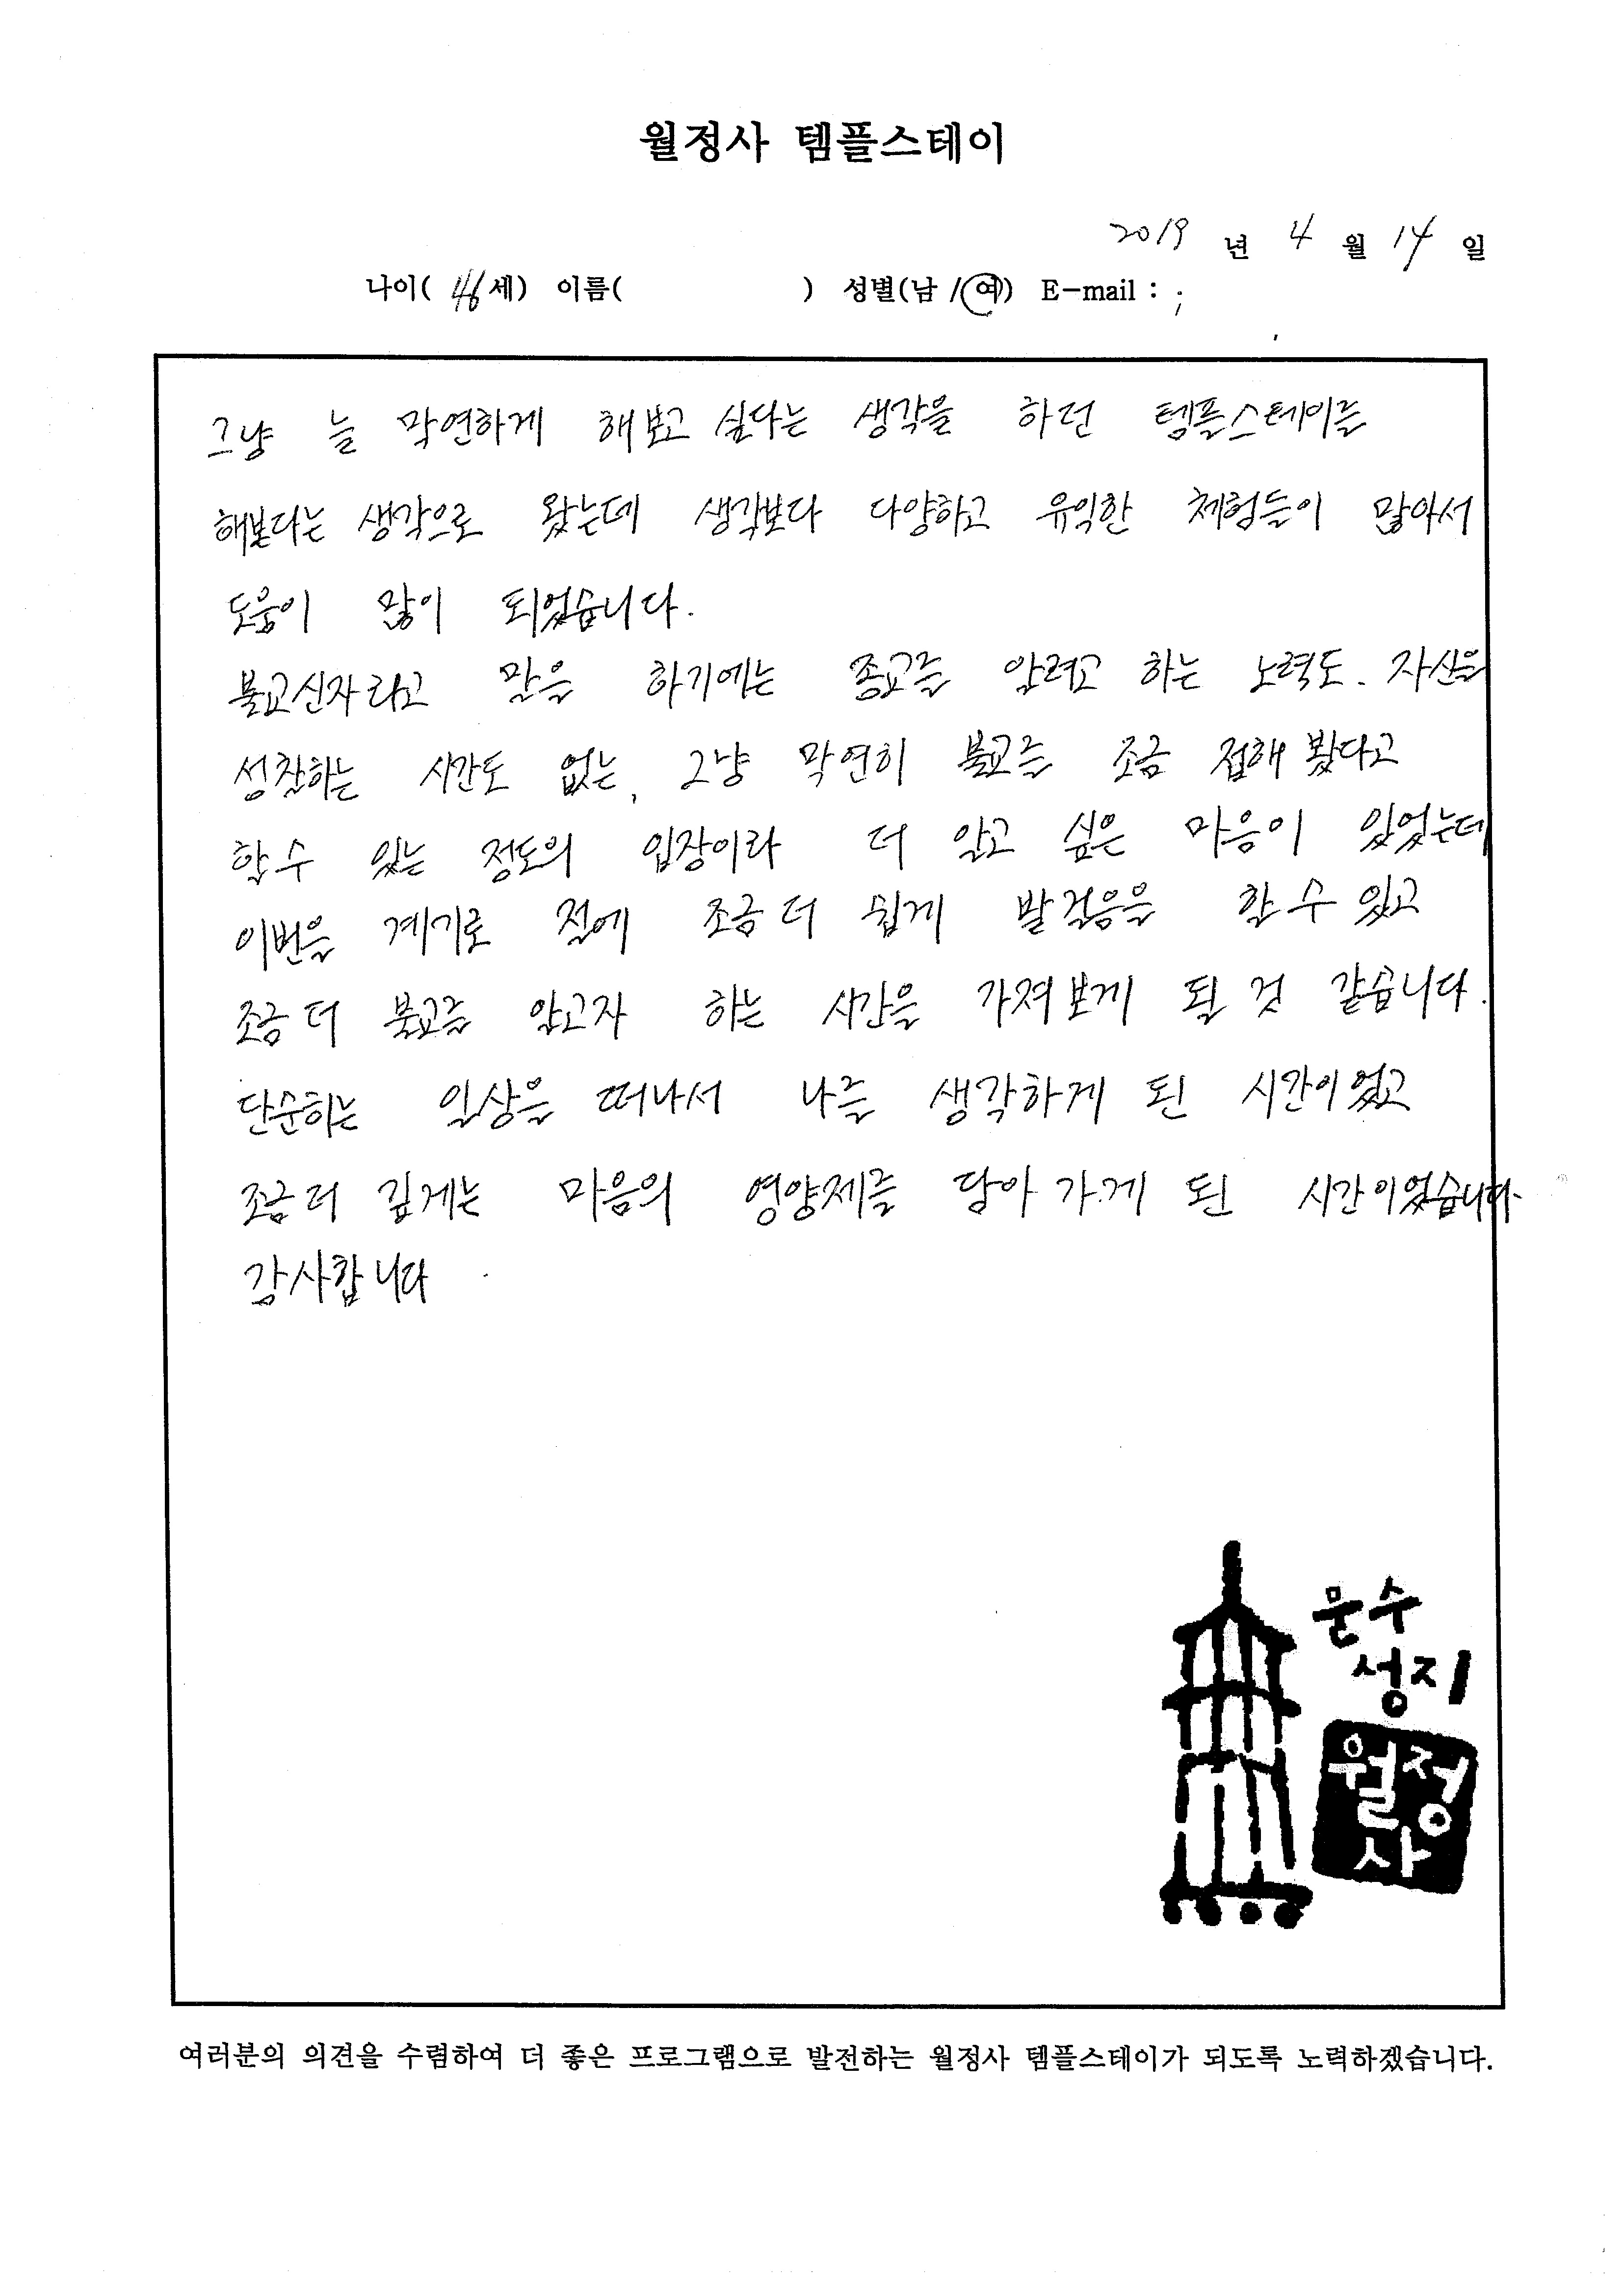 월정사 템플스테이
2019 년 4 월 14 일
나이( 46 세) 이름( ) 성별(남 / 여) E-mail :
그냥 늘 막연하게 해보고 싶다는 생각을 하던 템플스테이를
해본다는 생각으로 왔는데 생각보다 다양하고 유익한 체험들이 많아서
도움이 많이 되었습니다.
불교신자라고 말을 하기에는 종교를 알려고 하는 노력도. 자신을
성찰하는 시간도 없는, 그냥 막연히 불교를 조금 접해 봤다고
할 수 있는 정도의 입장이라 더 알고 싶은 마음이 있었는데
이번을 계기로 절에 조금 더 쉽게 발걸음을 할 수 있고
조금 더 불교를 알고자 하는 시간을 가져보게 될 것 같습니다.
단순히는 일상을 떠나서 나를 생각하게 된 시간이었고
조금 더 깊게는 마음의 영양제를 담아 가게 된 시간이었습니다.
감사합니다.
문수
성지
월정
사
여러분의 의견을 수렴하여 더 좋은 프로그램으로 발전하는 월정사 템플스테이가 되도록 노력하겠습니다.